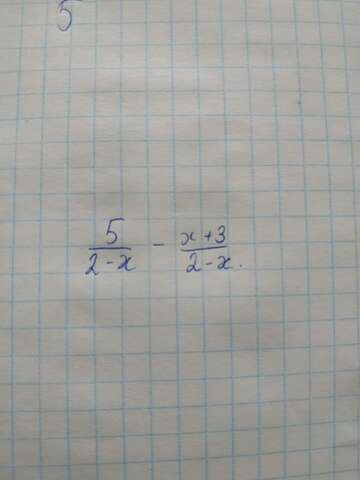 5
5/(2-x) - (x+3)/(2-x).